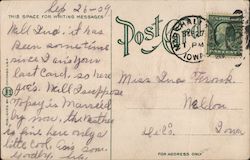 Sep 26-09
THIS SPACE FOR WRITING MESSAGES
Post
Well Ina. it has
been some time
since I ans your
last Card. so here
goes. Well I suppose
Topsy is Married
by now, the weather
is fine here only a
little cool. Ans soon
Miss Ina
Iowa
SEP 27
1 PM
IOWA
FOR ADDRESS ONLY